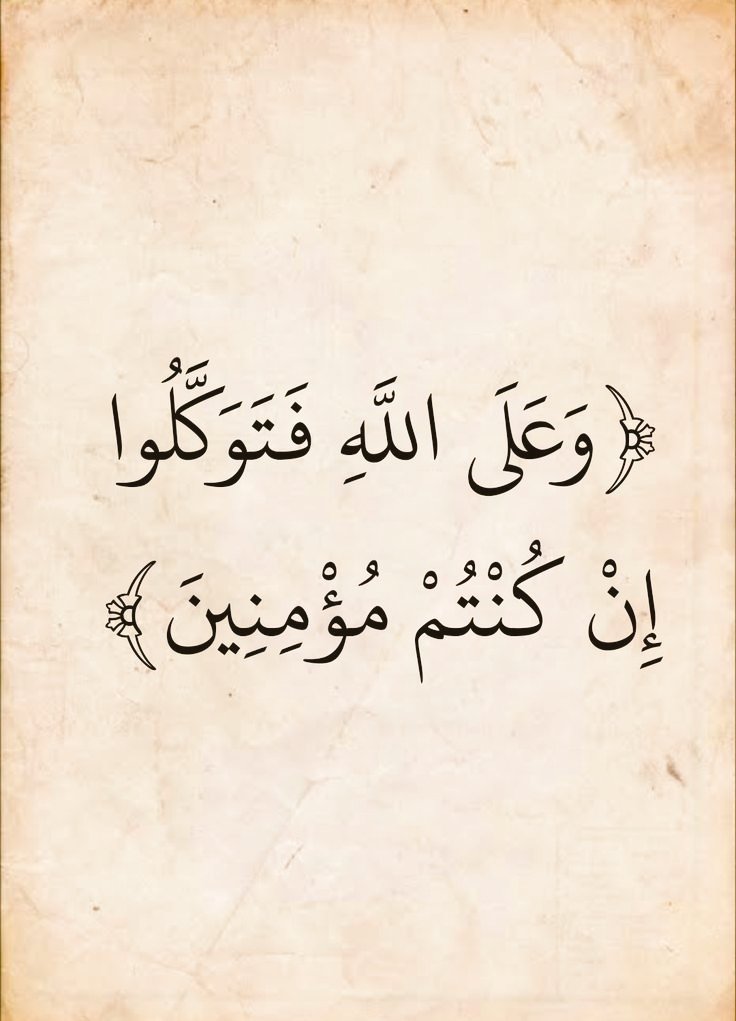 ﴿ وَعَلَى اللَّهِ فَتَوَكَّلُوا
إِنْ كُنْتُمْ مُؤْمِنِينَ ﴾